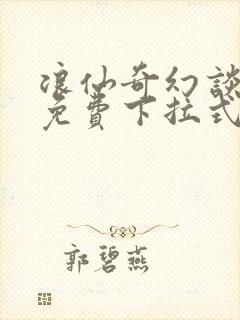 浪仙奇幻談
免費下拉式
郭碧燕